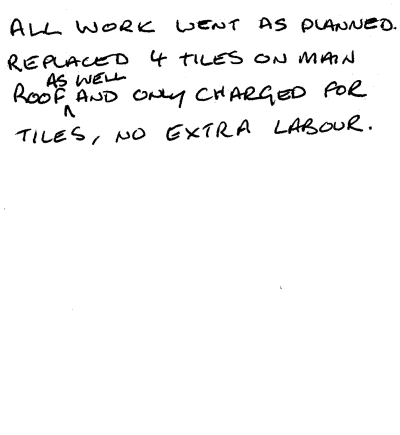 ALL WORK WENT AS PLANNED.
REPLACED 4 TILES ON MAIN
ROOF AS WELL AND ONLY CHARGED FOR
TILES, NO EXTRA LABOUR.